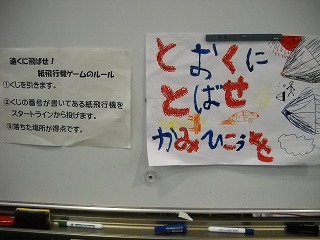 遠くに飛ばせ！
紙飛行機ゲームのルール
①くじを引きます。
②くじの番号が書いてある紙飛行機を
スタートラインから投げます。
③落ちた場所が得点です。
とおくに
とばせ
かみひこうき